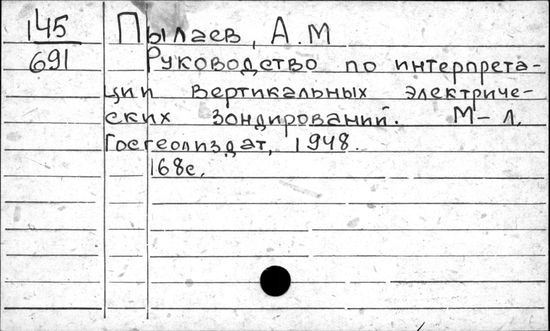 145 Пылаев, А.М
691 Руководство по интерпрета-
ции вертикальных электриче-
ских зондирований. М-Л.
Госгеолиздат, 1948.
168с.